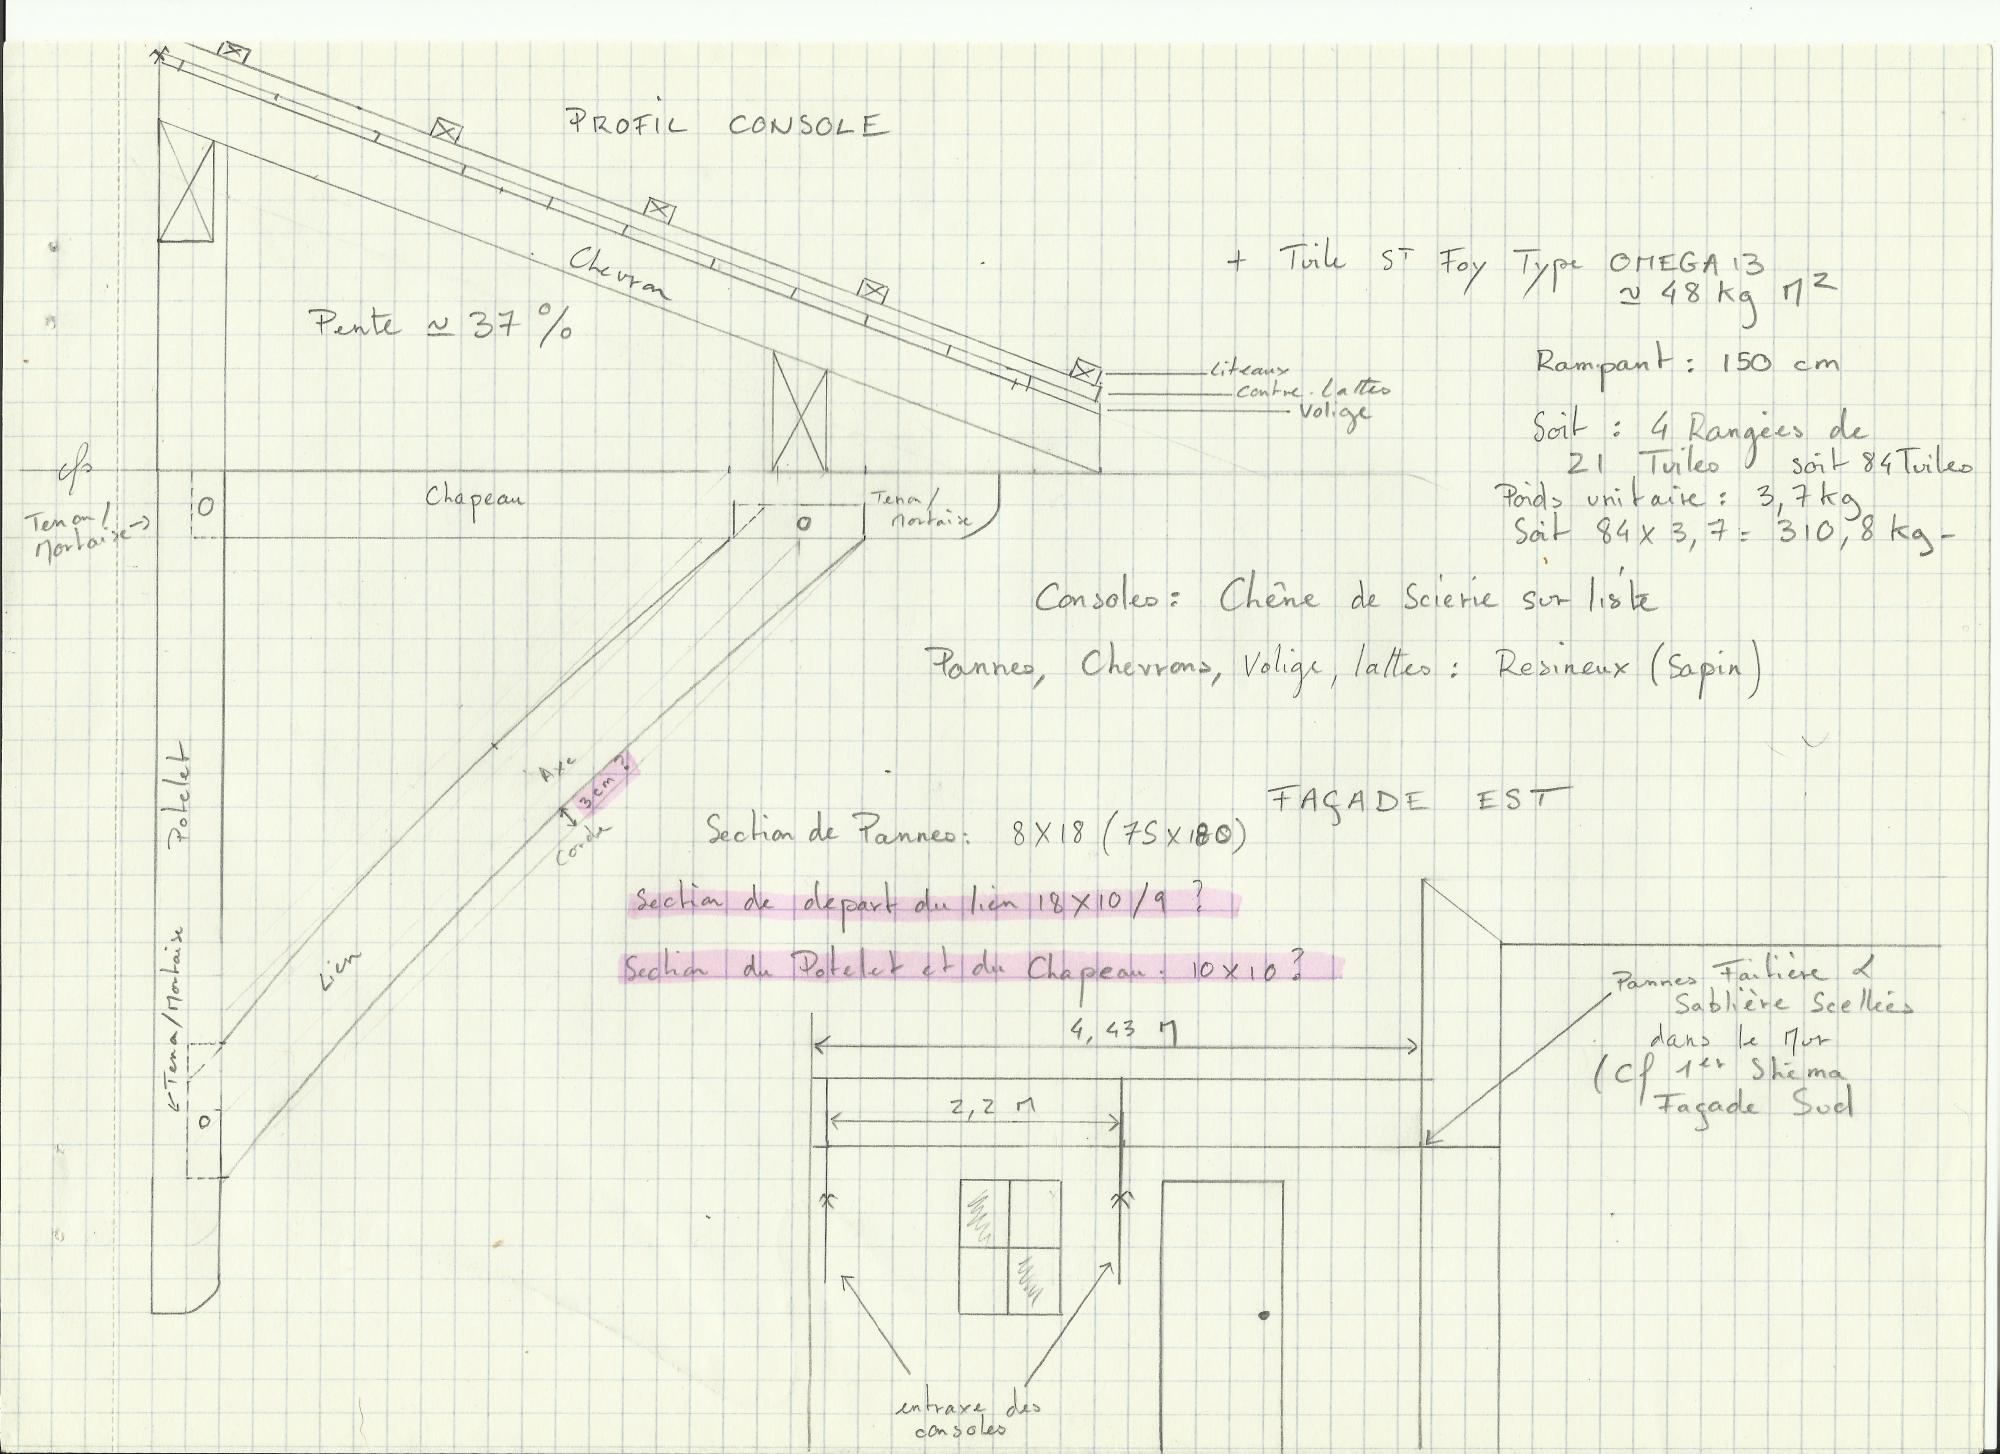 PROFIL CONSOLE
Chevron
Pente ≃ 37 %
+ Tuile ST Foy Type OMEGA 13
≃ 48 kg M²
Rampant : 150 cm
Liteaux
contre. lattes
Volige
Soit : 4 Rangées de
21 Tuiles soit 84 Tuiles
Poids unitaire : 3,7 kg
Soit 84 X 3,7 = 310,8 kg -
Chapeau
Tenon/
Mortaise →
Tenon/
Mortaise
Consoles : Chêne de Scierie sur liste
Pannes, Chevrons, Volige, lattes : Resineux (Sapin)
Potelet
Axe
3 cm ?
Corde
Lien
← Tenon/Mortaise
FAÇADE EST
Section de Pannes : 8 X 18 (75 X 180)
Section de depart du lien 18 X 10 / 9 ?
Section du Potelet et du Chapeau : 10 X 10 ?
4,43 M
2,2 M
Pannes Faitière &
Sablière Scellées
dans le Mur
(Cf 1er Shéma
Façade Sud
entraxe des
consoles